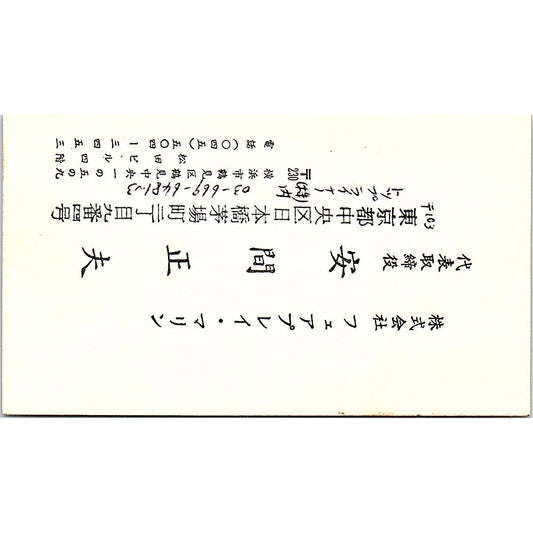 株式会社 フェアプレイ・マリン
代表取締役 安間正夫
〒103 東京都中央区日本橋茅場町二丁目九番四号
トップライナー(特内)
03-669-6481~3
〒230 横浜市鶴見区鶴見中央一の五の九
松田ビル四階
電話(〇四五)五〇四ー三四五三